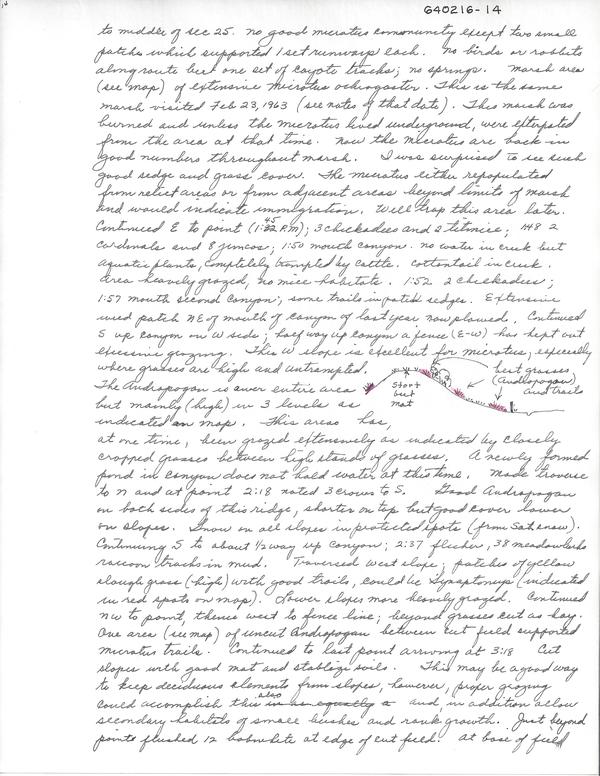 640216-14
to middle of sec 25. No good microtus community except two small
patches which supported 1 set runways each. No birds or rabbits
along route but one set of coyote tracks; no springs. Marsh area
(see map) of extensive Microtus ochrogaster. This is the same
marsh visited Feb 23, 1963 (see notes of that date). This marsh was
burned and unless the microtus lived underground, were extirpated
from the area at that time. Now the microtus are back in
good numbers throughout marsh. I was surprised to see such
good sedge and grass cover. The microtus either repopulated
from relict areas or from adjacent areas beyond limits of marsh
and would indicate immigration. Will trap this area later.
Continued E to point (1:45 P.M); 3 chickadees and 2 titmice; 148 2
cardinals and 8 juncos; 1:50 mouth canyon. no water in creek but
aquatic plants, completely trampled by cattle. cottontail in creek.
Area heavily grazed, no mice habitate. 1:52 2 chickadees;
1:57 mouth second canyon; some trails in patch sedges. Extensive
weed patch NE of mouth of canyon of last year now plowed. Continued
S up canyon on W side; half way up canyon a fence (E-W) has kept out
excessive grazing. This W slope is excellent for microtus, especially
where grasses are high and untrampled.
short
but
mat
best grasses
(Andropogon)
and trails
The Andropogon is over entire area
but mainly (high) in 3 levels as
indicated on map. This area has,
at one time, been grazed extensively as indicated by closely
cropped grasses between high stands of grasses. A newly formed
pond in canyon does not hold water at this time. Made traverse
to N and at point 2:18 noted 3 crows to S. Good Andropogon
on both sides of this ridge, shorter on top but good cover lower
on slopes. Snow on all slopes in protected spots (from Sat snow).
Continuing S to about 1/2 way up canyon; 2:37 flicker, 38 meadowlarks
raccoon tracks in mud. Traversed west slope; patches of yellow
slough grass (high) with good trails, could be Synaptomys (indicated
in red spots on map). Lower slopes more heavily grazed. Continued
NW to point, thence west to fence line; beyond grasses cut as hay.
One area (see map) of uncut Andropogon between cut field supported
microtus trails. Continued to last point arriving at 3:18 Cut
slopes with good mat and stablize soils. This may be a good way
to keep deciduous elements from slopes, however, proper grazing
could accomplish this also and, in addition allow
secondary habitats of small bushes and rank growth. Just beyond
points flushed 12 bobwhite at edge of cut field. At base of field